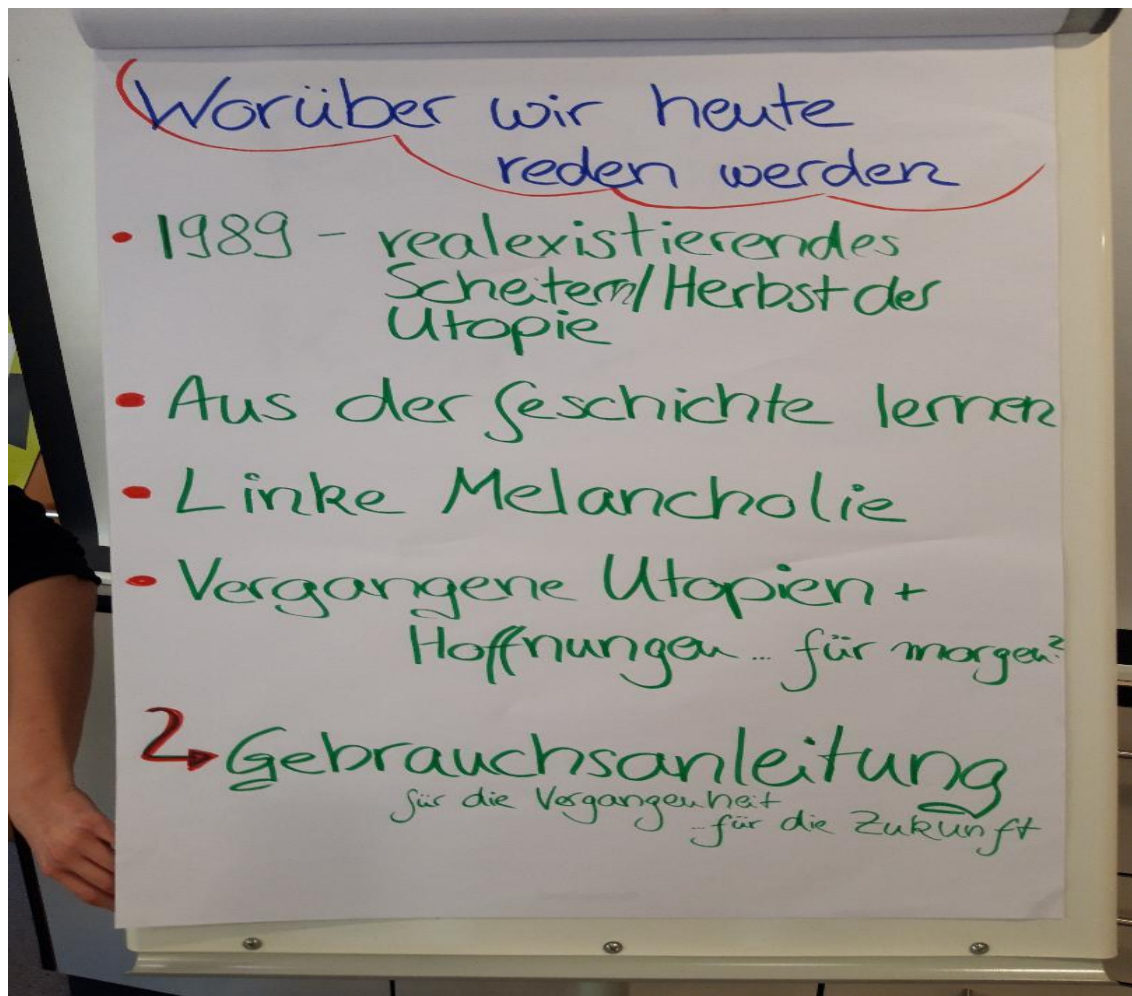 Worüber wir heute
reden werden
• 1989 - realexistierendes
Scheitern/Herbst der
Utopie
• Aus der Geschichte lernen
• Linke Melancholie
• Vergangene Utopien +
Hoffnungen... für morgen?
Gebrauchsanleitung
für die Vergangenheit
...für die Zukunft